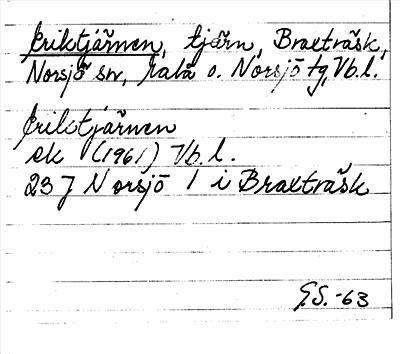 Eriktjärnen, tjärn, Braxträsk,
Norsjö sn, Malå o. Norsjö tg, Vb.l.
Eriktjärnen
ek (1961) Vb.l.
23J Norsjö 1 i Braxträsk
G.S. -63